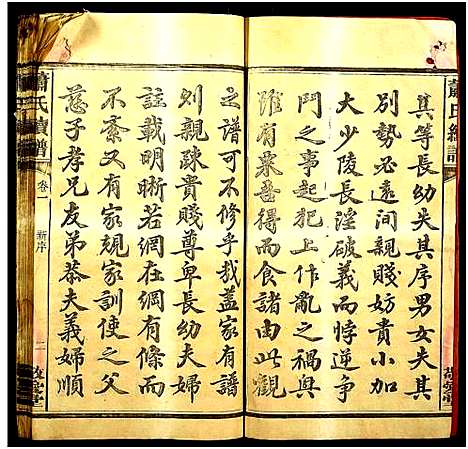 蕭氏續譜
其等長幼失其序男女失其
別勢必遠間親賤妨貴小加
大少陵長淫破義而悖逆爭
鬥之事起犯上作亂之禍興
雖有粟吾得而食諸由此觀
之譜可不修乎哉蓋家有譜
則親疎貴賤尊卑長幼夫婦
註載明晰若網在綱有條而
不紊又有家規家訓使之父
慈子孝兄友弟恭夫義婦順
蕭氏續譜
卷一
新序
二